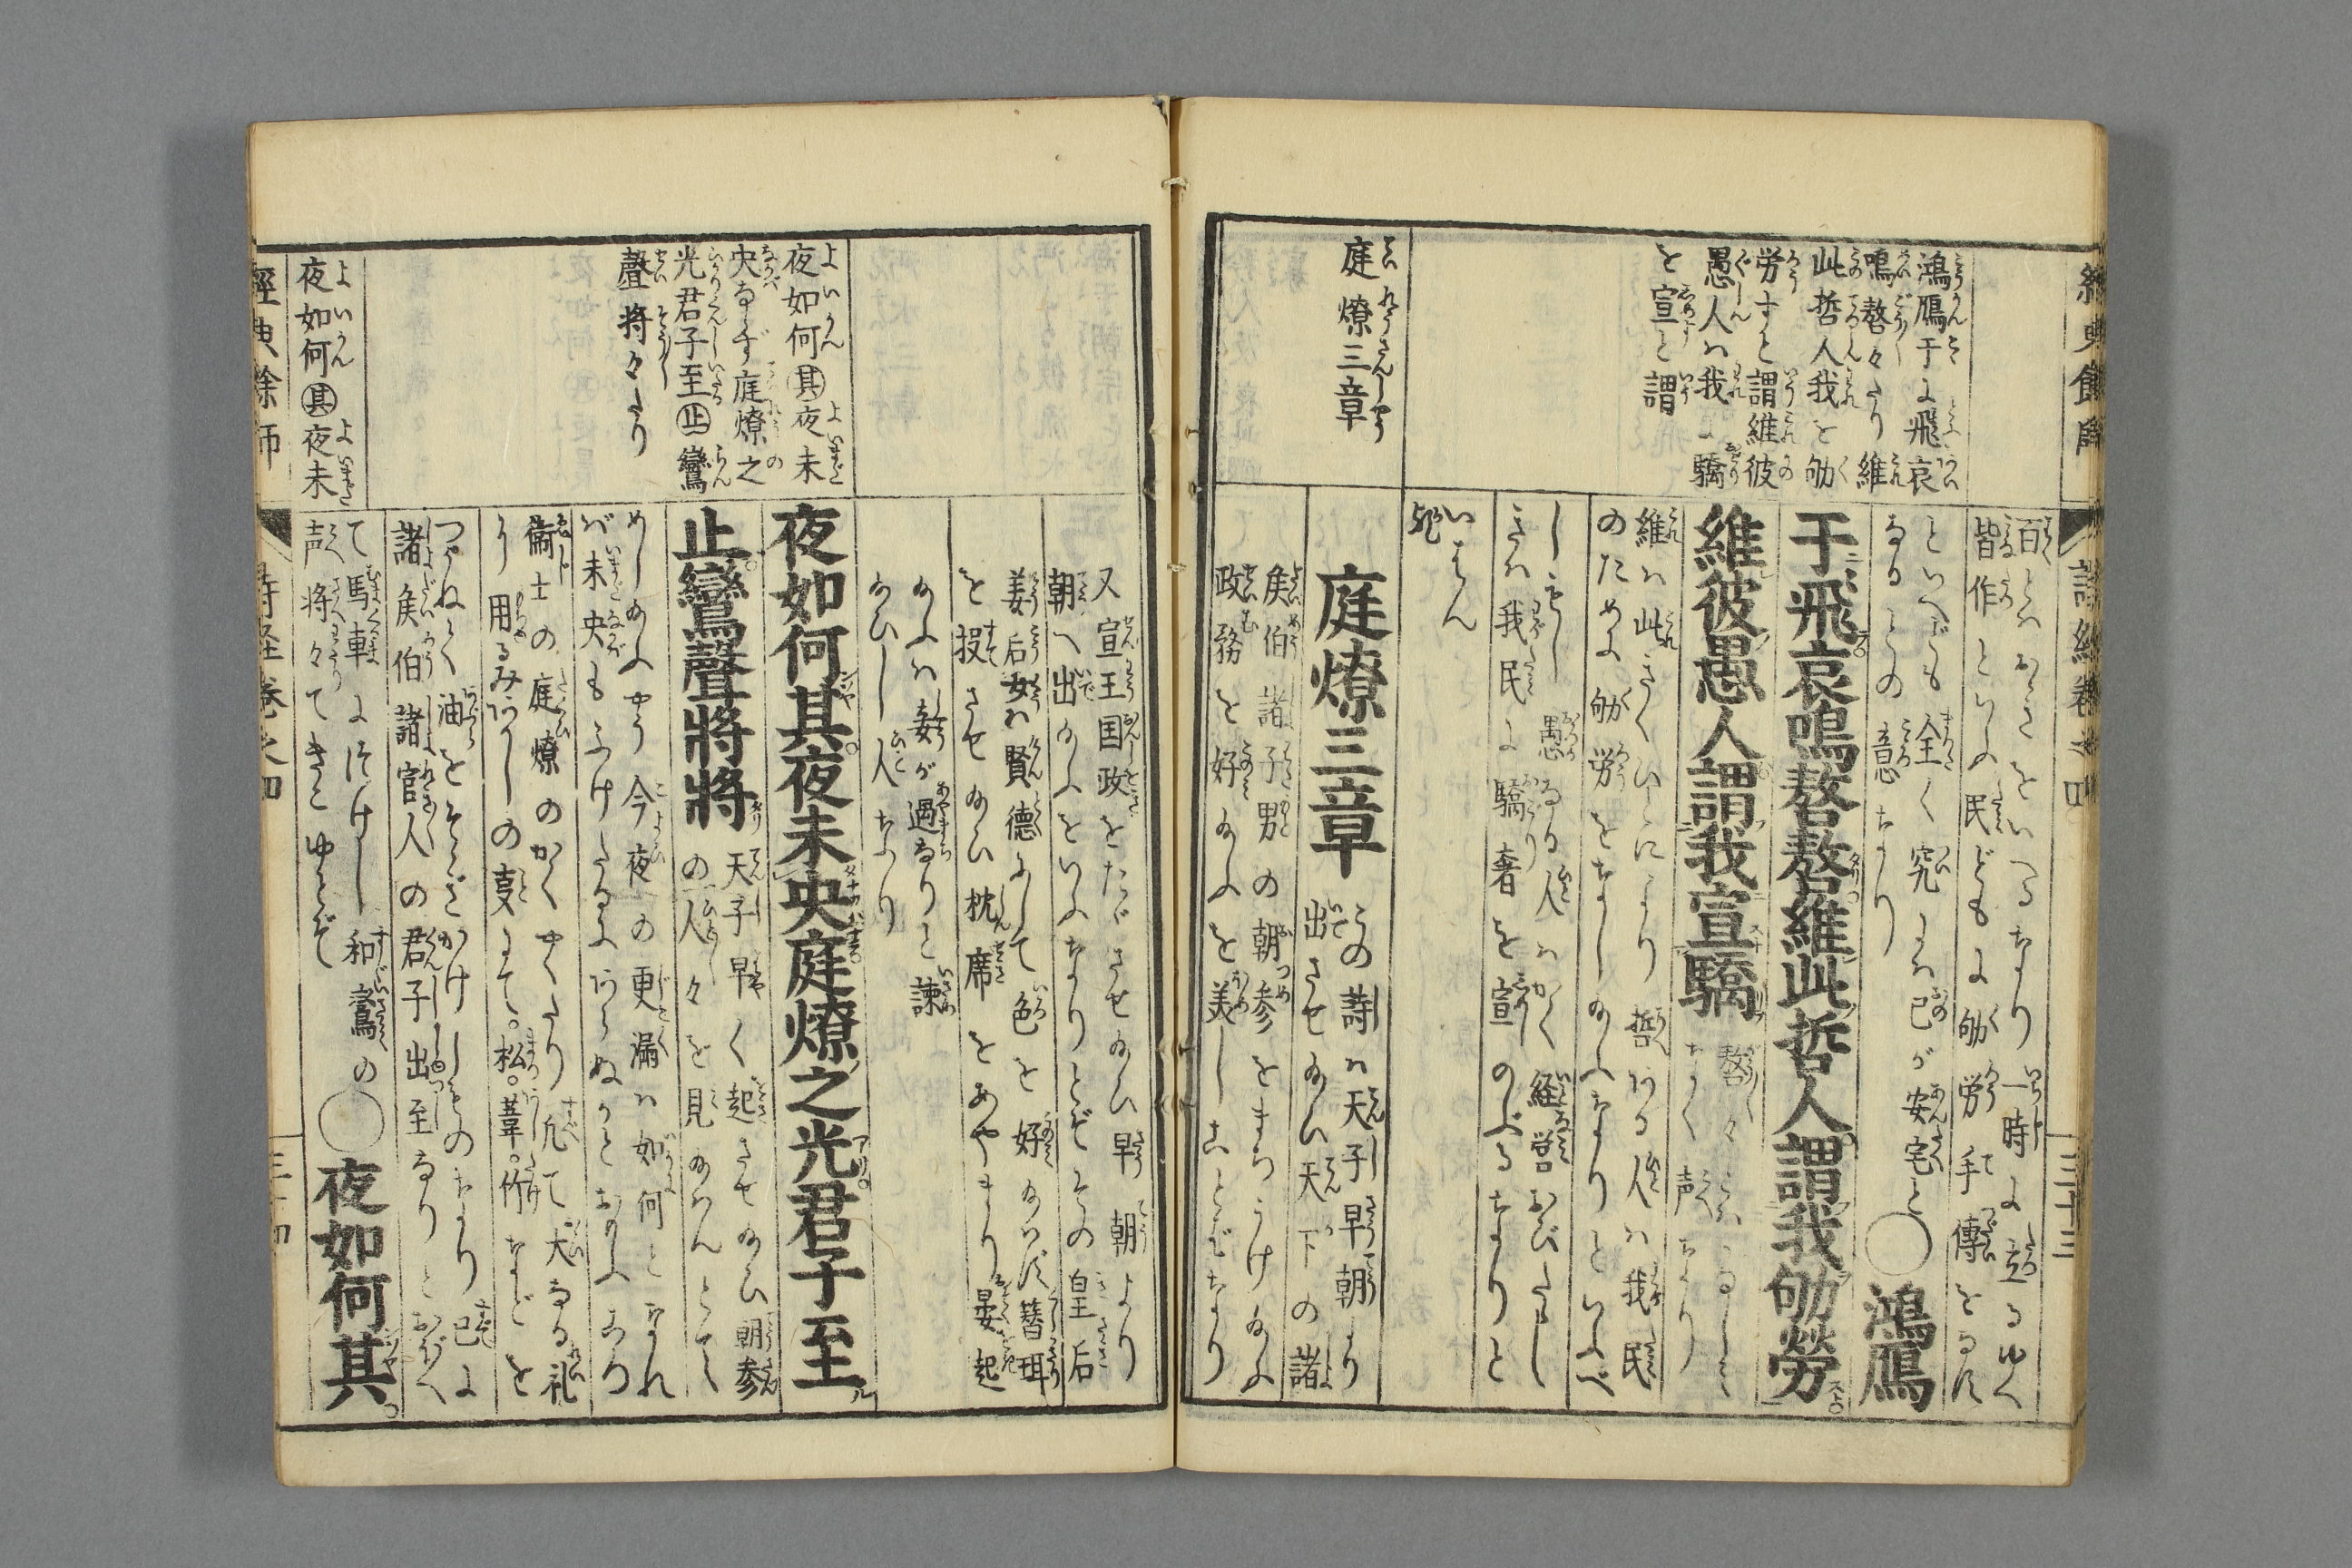 鴻鴈于よ飛哀
鳴嗸々たり維
此哲人我を劬
労すと謂維彼
愚人ハ我
驕
を宣と謂
庭燎三章
百とハおゝきをいへるなり一時に立るゆへ
皆作といふ民どもに劬労手傳をるハ
といへども全く究るハ己が安宅と
なるとの意なり
○鴻鴈
于飛哀鳴嗸嗸維此哲人謂我劬勞
維彼愚人謂我宣驕
嗸々
なく声なり
維ハ此
哲ある人ハ我民
のために劬労をなし給ふなりといふべし
愚なる人ハかく経営
我民に驕奢を宣のぶるなりと
いはん
庭燎三章
この詩ハ天子早朝より
出させ給ひ天下の諸
侯伯諸子男の朝参をまちうけ給ふ
政務を好給ふを美しことばなり
又宣王国政をたゞさせ給ひ早朝より
朝へ出給ふといふなりとぞその皇后
姜后女ハ賢徳にして色を好給ハず簪珥
を投させ給ひ枕席をあやまり晏起
給ふハ妾が過なりと諫
給ひし人なり
夜如何其夜未央庭燎之光君子至
止鸞聲將將
天子早く起させ給ひ朝参
の人々を見給わんとて
めし給ふやう今夜の更漏ハ如何となれ
ば未央もふけたるにあらぬかとおもふころ
衞士の庭燎のかくやくたり凡て大なる礼
に用るみあかしの事にて。松。葦。竹などを
つかねて油をそゝぎかけしものなり已に
諸侯伯諸官人の君子出至なりとおぼへ
て駟車につけし和鸞の
声将々てきこゆとぞ
○夜如何其
夜如何其夜未
央ならず庭燎之
光君子至止鸞
聲将々たり
夜如何其夜未
經典餘師
詩経巻之四
三十三